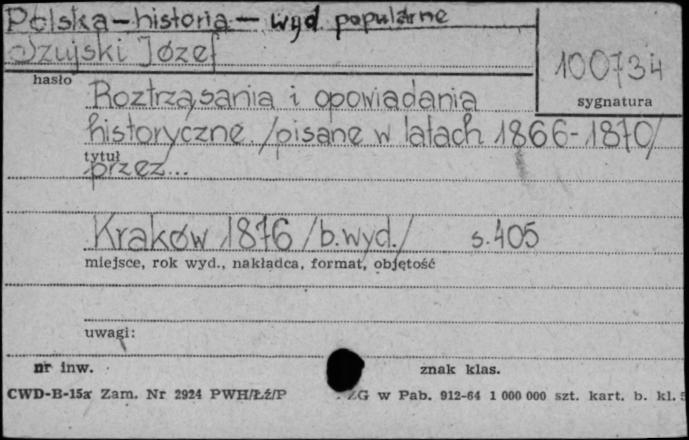 Polska - historia - wyd. popularne
Szujski Józef
100734
hasło
sygnatura
Roztrząsania i opowiadania
historyczne /pisane w latach 1866-1870/
tytuł
przez...
Kraków 1876 /b.wyd./ s.405
miejsce, rok wyd., nakładca, format, objętość
uwagi:
nr inw.
znak klas.
CWD-B-15a Zam. Nr 2924 PWH/Łż/P ZG w Pab. 912-64 1 000 000 szt. kart. b. kl. 5